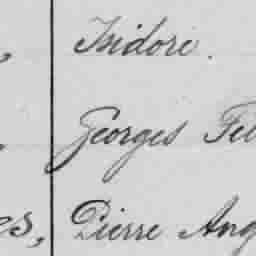 , Isidore.
, Georges
es, Pierre